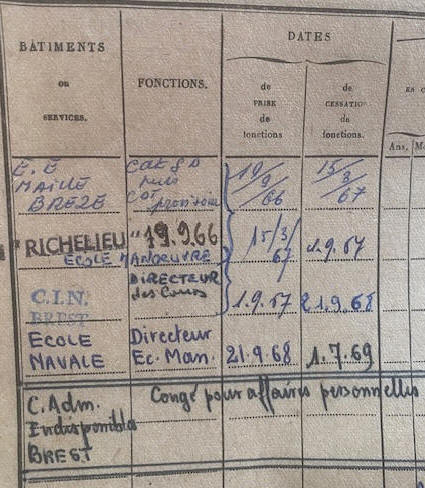 DATES
BÂTIMENTS
ou
SERVICES.
FONCTIONS.
de
PRISE
de
fonctions
de
CESSATION
de
fonctions.
EN C
Ans. M
E.E
MAILLÉ
BREZE
Cdt
puis
provisoire
19/9/66
15/3/67
"RICHELIEU" 19.9.66
15/3/67
1.9.67
ECOLE MANOEUVRE
C.I.N.
BREST
DIRECTEUR
des Cours
1.9.67
21.9.68
ECOLE
NAVALE
Directeur
Ec. Man.
21.9.68
1.7.69
C. Adm.
Indisponible
BREST
Congé pour affaires personnelles